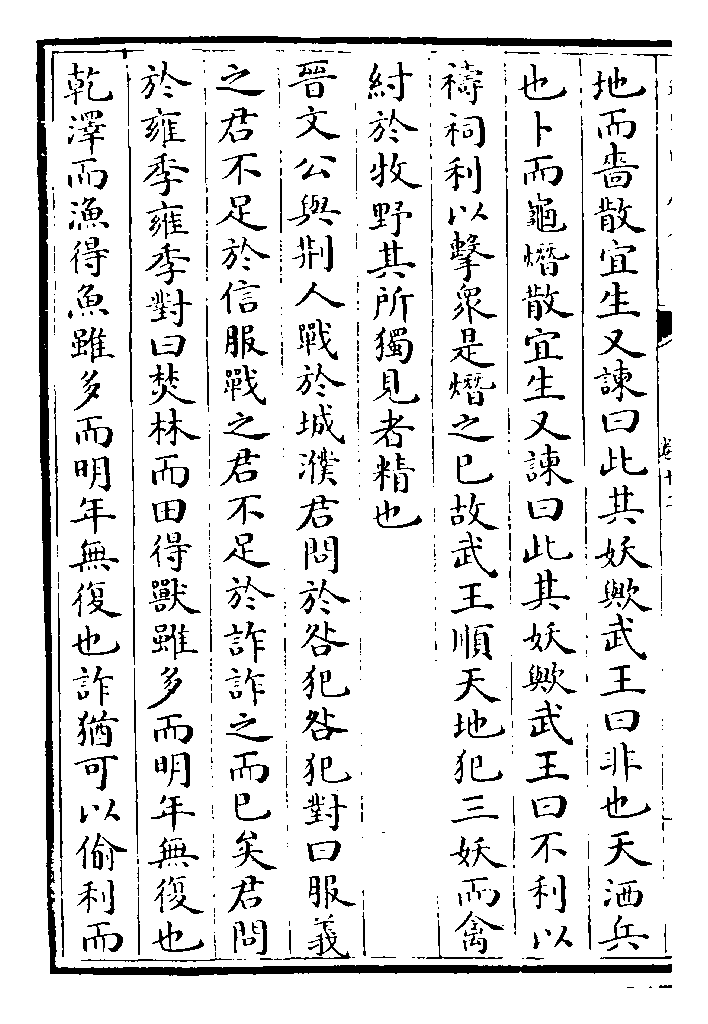 地而嗇散宜生又諫曰此其妖歟武王曰非也天洒兵
也卜而龜熸散宜生又諫曰此其妖歟武王曰不利以
禱祠利以擊衆是熸之已故武王順天地犯三妖而禽
紂於牧野其所獨見者精也
晉文公與荆人戰於城濮君問於咎犯咎犯對曰服義
之君不足於信服戰之君不足於詐詐之而已矣君問
於雍季雍季對曰焚林而田得獸雖多而明年無復也
乾澤而漁得魚雖多而明年無復也詐猶可以偷利而